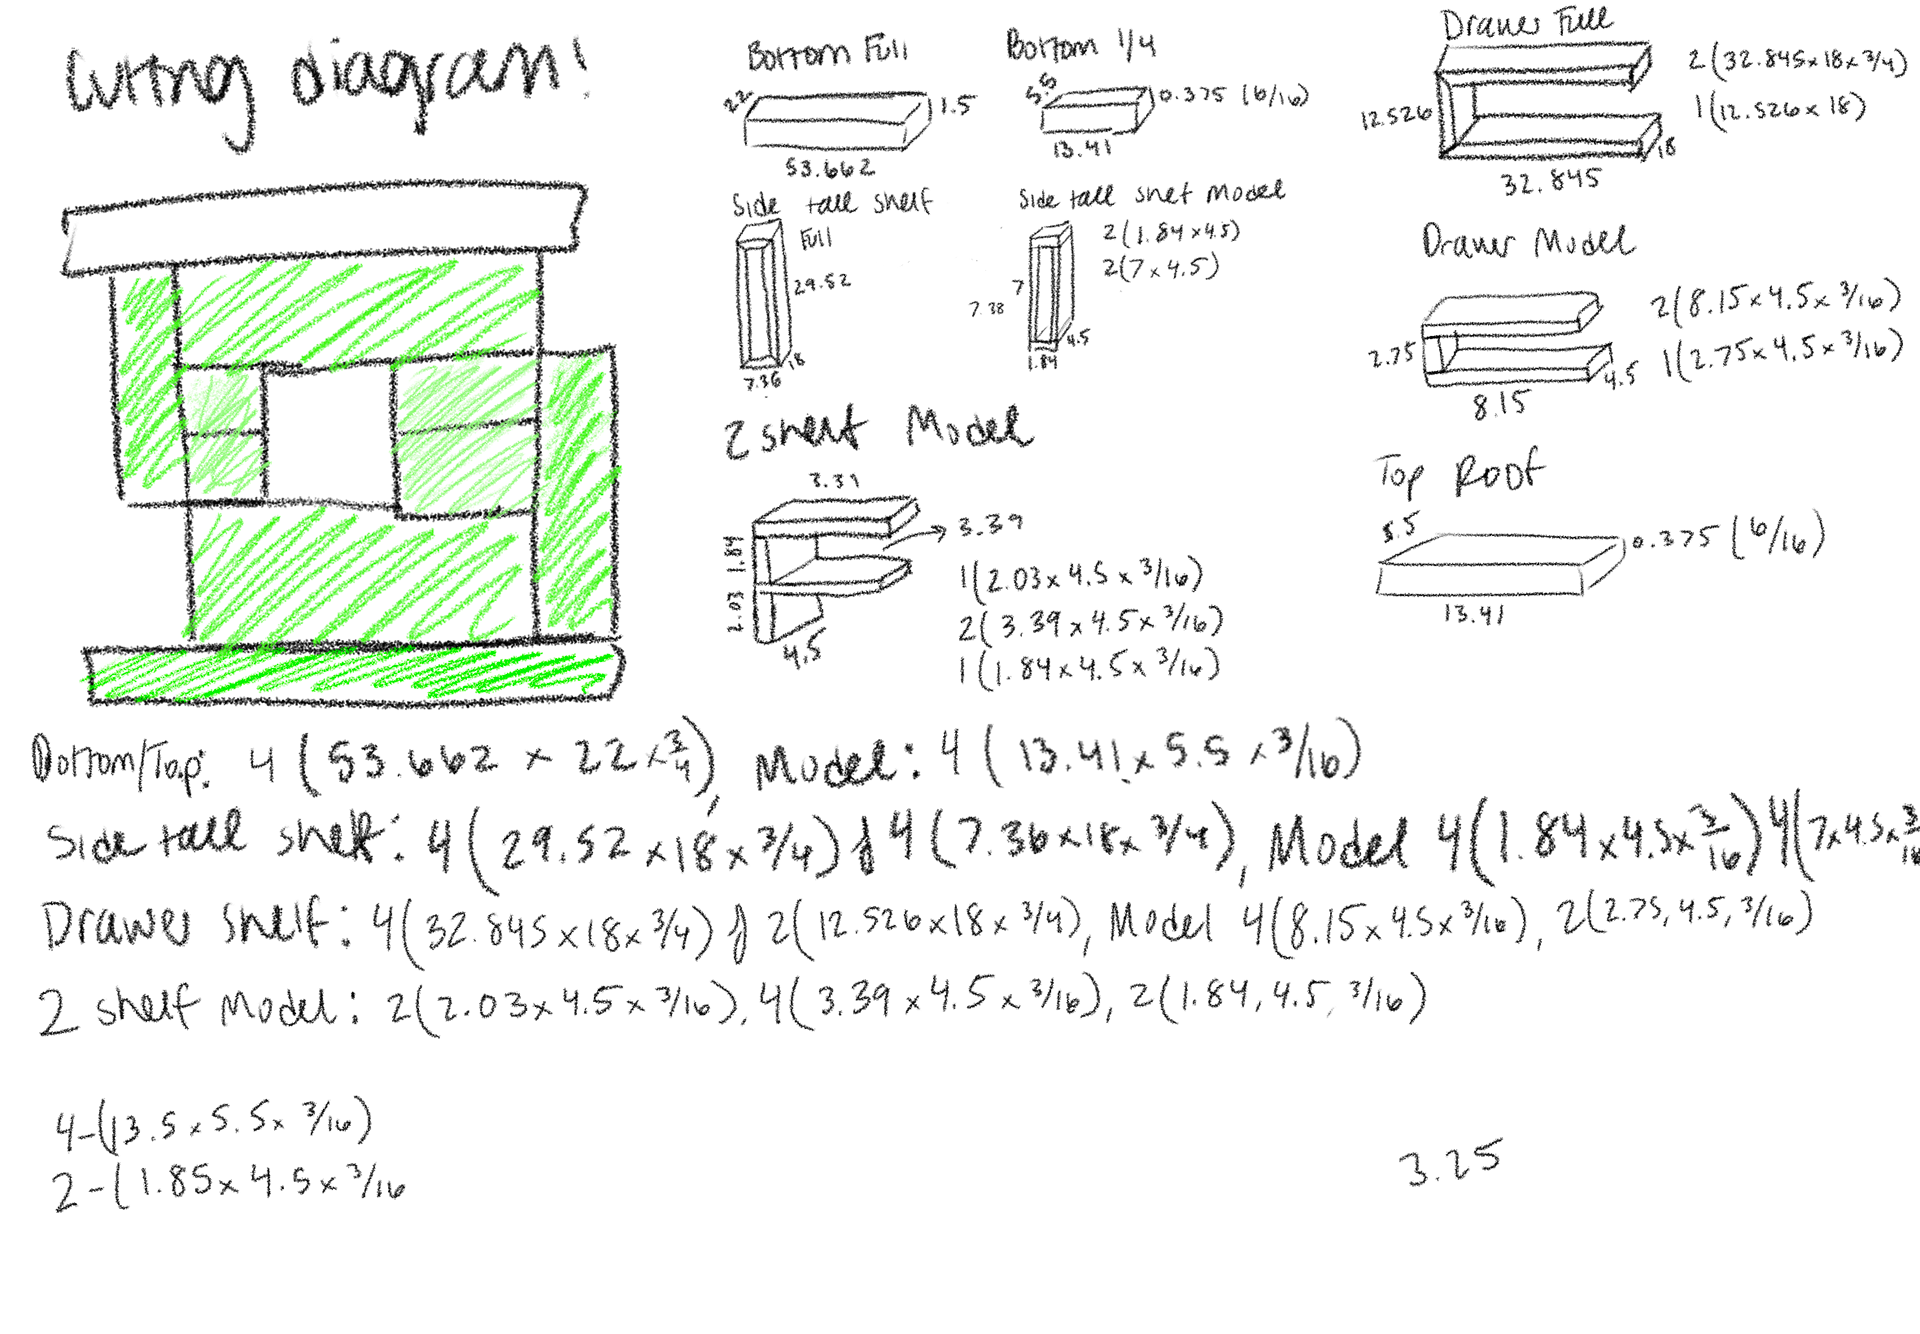 Cutting diagram!
Bottom Full
22
1.5
53.662
Bottom 1/4
5.5
0.375 (6/16)
13.41
Drawer Full
2(32.845x18x3/4)
1(12.526x18)
12.526
18
32.845
Side tall shelf
Full
29.52
18
7.36
Side tall shelf Model
2(1.84x4.5)
2(7x4.5)
7
7.38
4.5
1.84
Drawer Model
2(8.15x4.5x3/16)
1(2.75x4.5x3/16)
2.75
4.5
8.15
2 shelf Model
3.39
1.84
3.39
2.03
4.5
1(2.03x4.5x3/16)
2(3.39x4.5x3/16)
1(1.84x4.5x3/16)
Top Roof
5.5
0.375 (6/16)
13.41
Bottom/Top: 4(53.662 x 22 x 3/4), Model: 4(13.41x5.5x3/16)
Side tall shelf: 4(29.52x18x3/4) & 4(7.36x18x3/4), Model 4(1.84x4.5x3/16) 4(7x4.5x3/16
Drawer shelf: 4(32.845x18x3/4) & 2(12.526x18x3/4), Model 4(8.15x4.5x3/16), 2(2.75, 4.5, 3/16)
2 shelf Model: 2(2.03x4.5x3/16), 4(3.39x4.5x3/16), 2(1.84, 4.5, 3/16)
4-(13.5x5.5x3/16)
2-(1.85x4.5x3/16
3.25